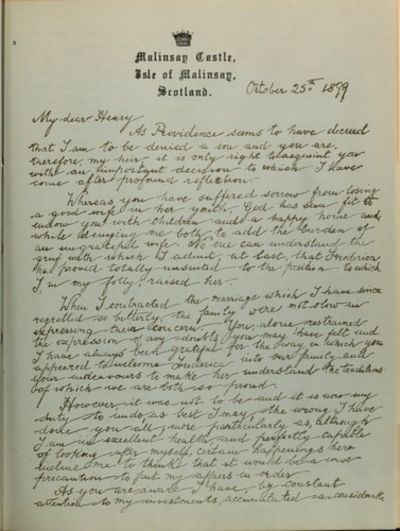 Malinsay Castle,
Isle of Malinsay,
Scotland.
October 25th 1899
My dear Henry
As Providence seems to have decreed
that I am to be denied a son and you are,
therefore, my heir, it is only right to acquaint you
with an important decision to which I have
come after profound reflection.
Whereas you have suffered sorrow from losing
a good wife in her youth, God has seen fit to
endow you with children and a happy home and
while denying me both, to add the burden of
an ungrateful wife. No one can understand the
grief with which I admit, at last, that Frederica
has proved totally unsuited to the position to which
I, in my folly, raised her.
When I contracted the marriage which I have since
regretted so bitterly, the family were not slow in
expressing their concern. You, alone, restrained
the expression of any doubts you may have felt and
I have always been grateful for the way in which you
appeared to welcome Frederica into our family and
your endeavours to make her understand the traditions
of which we are both so proud.
However, it was not to be and it is now my
duty to undo as best I may, the wrong I have
done you all; more particularly as, although
I am in excellent health and perfectly capable
of looking after myself, certain happenings here
incline me to think that it would be a wise
precaution to put my affairs in order.
As you are aware I have, by constant
attention to my investments, accumulated a considerable